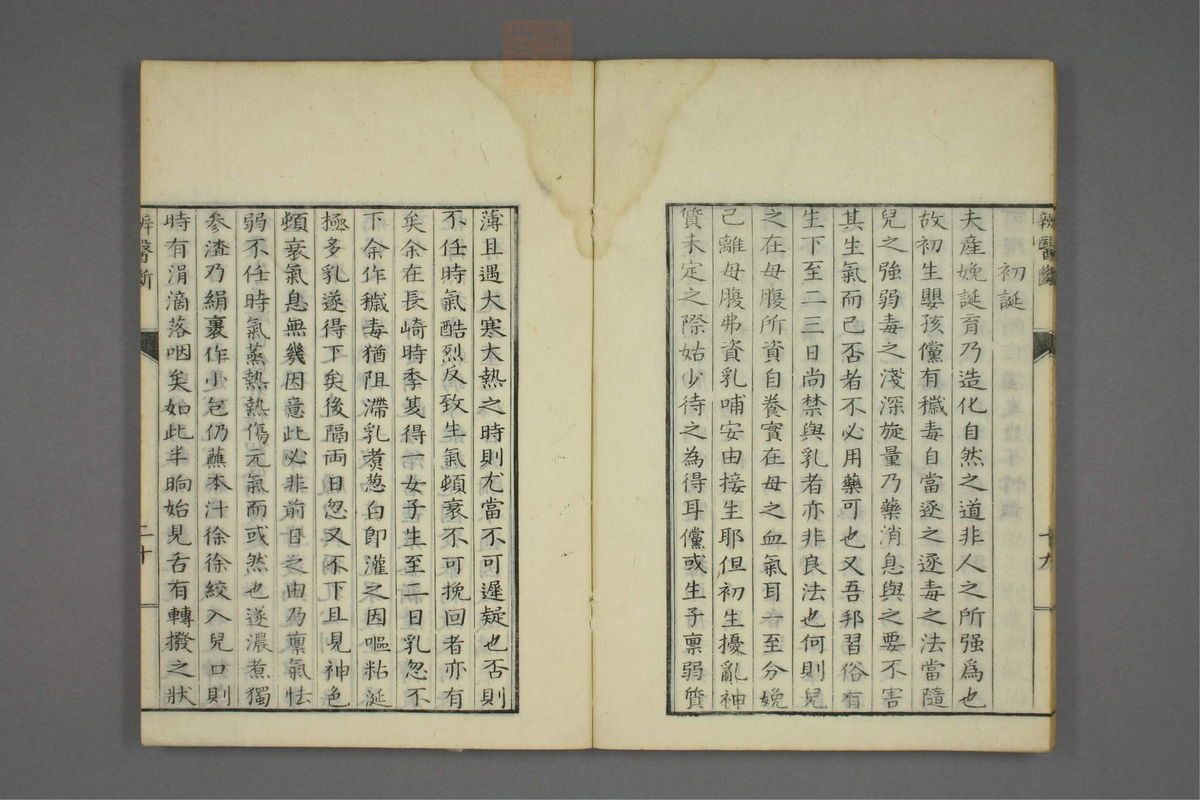 初誕
夫産娩誕育乃造化自然之道非人之所强爲也
故初生嬰孩儻有穢毒自當逐之逐毒之法當隨
兒之强弱毒之淺深旋量乃藥消息與之要不害
其生氣而己否者不必用藥可也又吾邦習俗有
生下至二三日尚禁與乳者亦非良法也何則兒
之在母腹所資自養實在母之血氣耳一至分娩
己離母腹弗資乳哺安由接生耶但初生擾亂神
質未定之際姑少待之為得耳儻或生子禀弱質
十九
薄且遇大寒大熱之時則尤當不可遲疑也否則
不任時氣酷烈反致生氣頓衰不可挽回者亦有
矣余在長崎時季夏得一女子生至二日乳忽不
下余作穢毒猶阻滯乳煑葱白卽灌之因嘔粘涎
極多乳遂得下矣後隔両日忽又不下且見神色
頓衰氣息無幾因意此必非前日之由乃禀氣怯
弱不任時氣蒸熱熱傷元氣而或然也遂濃煮獨
参渣乃絹裹作少包仍蘸本汁徐徐絞入兒口則
時有涓滴落咽矣如此半晌始見舌有轉撥之狀
辨醫斷
二十